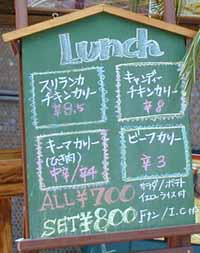 Lunch
スリランカ
チキンカリー
キャンディー
チキンカリー
辛8
キーマカリー
(ひき肉)
中辛/辛4
ビーフカリー
辛3
ALL ¥700 サラダ/ポテト
イエローライス付
SET ¥800 ドリンク/I.C付